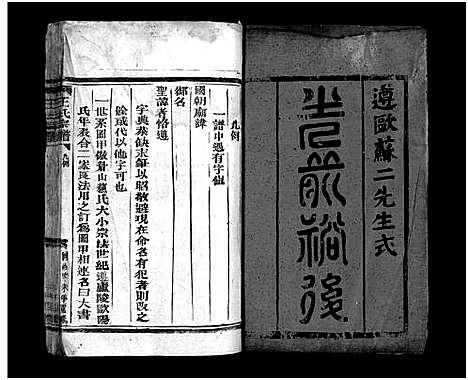 遵歐蘇二先生式
光前裕後
凡例
一譜中遇有字
國朝廟諱
御名
聖諱者恪遵
字典恭缺末筆以昭敬避現在命名有犯者則改之
餘或代以他字可也
一世系圖甲做眉山蘇氏大小宗法世紀遵廬陵歐陽
氏年表合二家良法用之訂為圖甲相連名曰大書
王氏宗譜
凡例